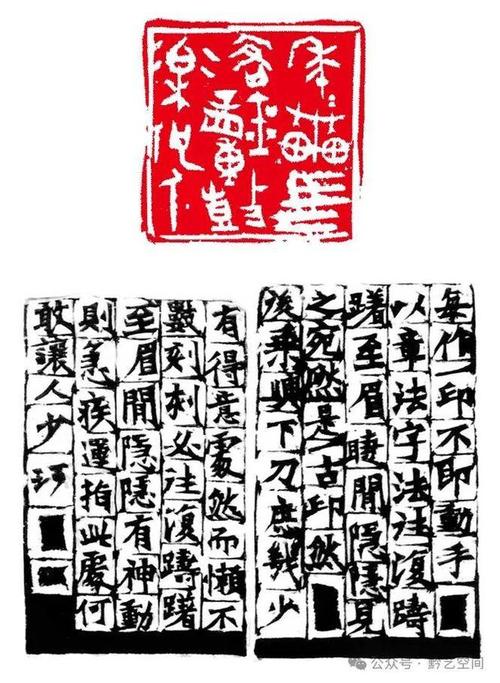 每作一印不即動手
以章法字法往復躊
躇至眉睫間隱隱見
之宛然是一古印然
後乘興下刀庶幾少
有得意處然而懶不
數刻刻必往復躊躇
至眉間隱隱有神動
則急疾運指此處何
敢讓人少珂
公众号·黔艺空间